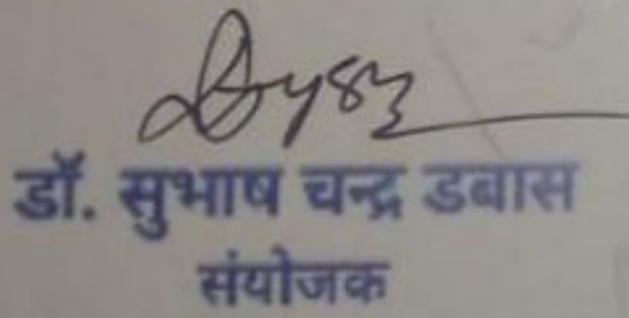 डॉ. सुभाष चन्द्र डबास
संयोजक